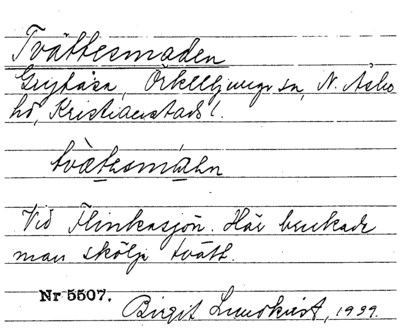 Tvättesmaden
Grytåsa, Örkelljunga sn, N. Åsbo
hd, Kristianstads l.
tvätesmáden
Vid Flinkasjön. Här brukade
man skölja tvätt.
Nr 5507.
Birgit Lundkvist, 1939.